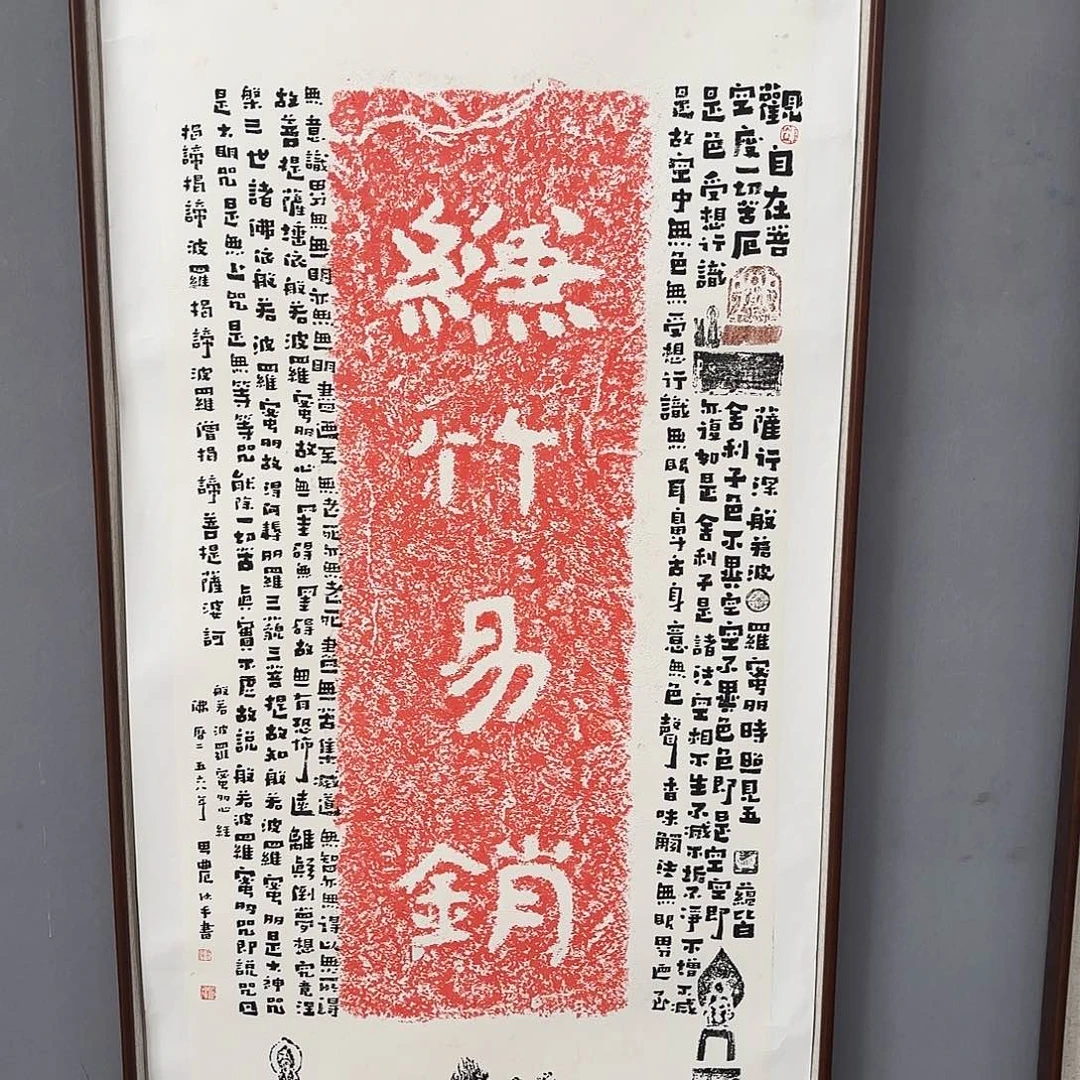 觀自在菩薩行深般若波羅蜜多時照見五蘊皆
空度一切苦厄舍利子色不異空空不異色色即是空空即
是色受想行識亦復如是舍利子是諸法空相不生不滅不垢不淨不增不減
是故空中無色無受想行識無眼耳鼻舌身意無色聲香味觸法無眼界乃至
縑竹易銷
無意識界無無明亦無無明盡乃至無老死亦無老死盡無苦集滅道無智亦無得以無所得
故菩提薩埵依般若波羅蜜多故心無罣礙無罣礙故無有恐怖遠離顛倒夢想究竟涅
槃三世諸佛依般若波羅蜜多故得阿耨多羅三藐三菩提故知般若波羅蜜多是大神咒
是大明咒是無上咒是無等等咒能除一切苦真實不虛故說般若波羅蜜多咒即說咒曰
揭諦揭諦波羅揭諦波羅僧揭諦菩提薩婆訶
般若波羅蜜多心經
佛曆二五六八年 農沐手書